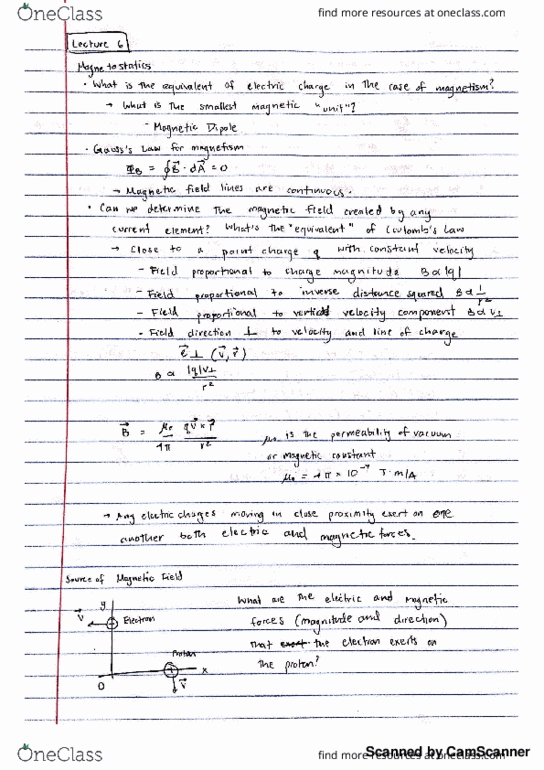 OneClass
find more resources at oneclass.com
Lecture 6
Magnetostatics
• What is the equivalent of electric charge in the case of magnetism?
→ What is the smallest magnetic "unit"?
- Magnetic Dipole
• Gauss's Law for magnetism
Φ_B = ∮B⃗ · dA⃗ = 0
→ Magnetic field lines are continuous.
• Can we determine the magnetic field created by any
current element? What's the "equivalent" of Coulomb's Law
→ Close to a point charge q with constant velocity
- Field proportional to charge magnitude B ∝ |q|
- Field proportional to inverse distance squared B ∝ 1/r²
- Field proportional to vertical velocity component B ∝ v⊥
- Field direction ⊥ to velocity and line of charge
⊥ (v⃗, r⃗)
B ∝ |q|v⊥/r²
B⃗ = μ₀/4π qv⃗ × r̂/r²
μ₀ is the permeability of vacuum
or magnetic constant
μ₀ = 4π × 10⁻⁷ T·m/A
→ Any electric charges moving in close proximity exert on one
another both electric and magnetic forces.
Source of Magnetic Field
What are the electric and magnetic
forces (magnitude and direction)
that the electron exerts on
the proton?
y
v⃗
Electron
Proton
x
0
v⃗
OneClass
find more resources at oneclass.com
Scanned by CamScanner